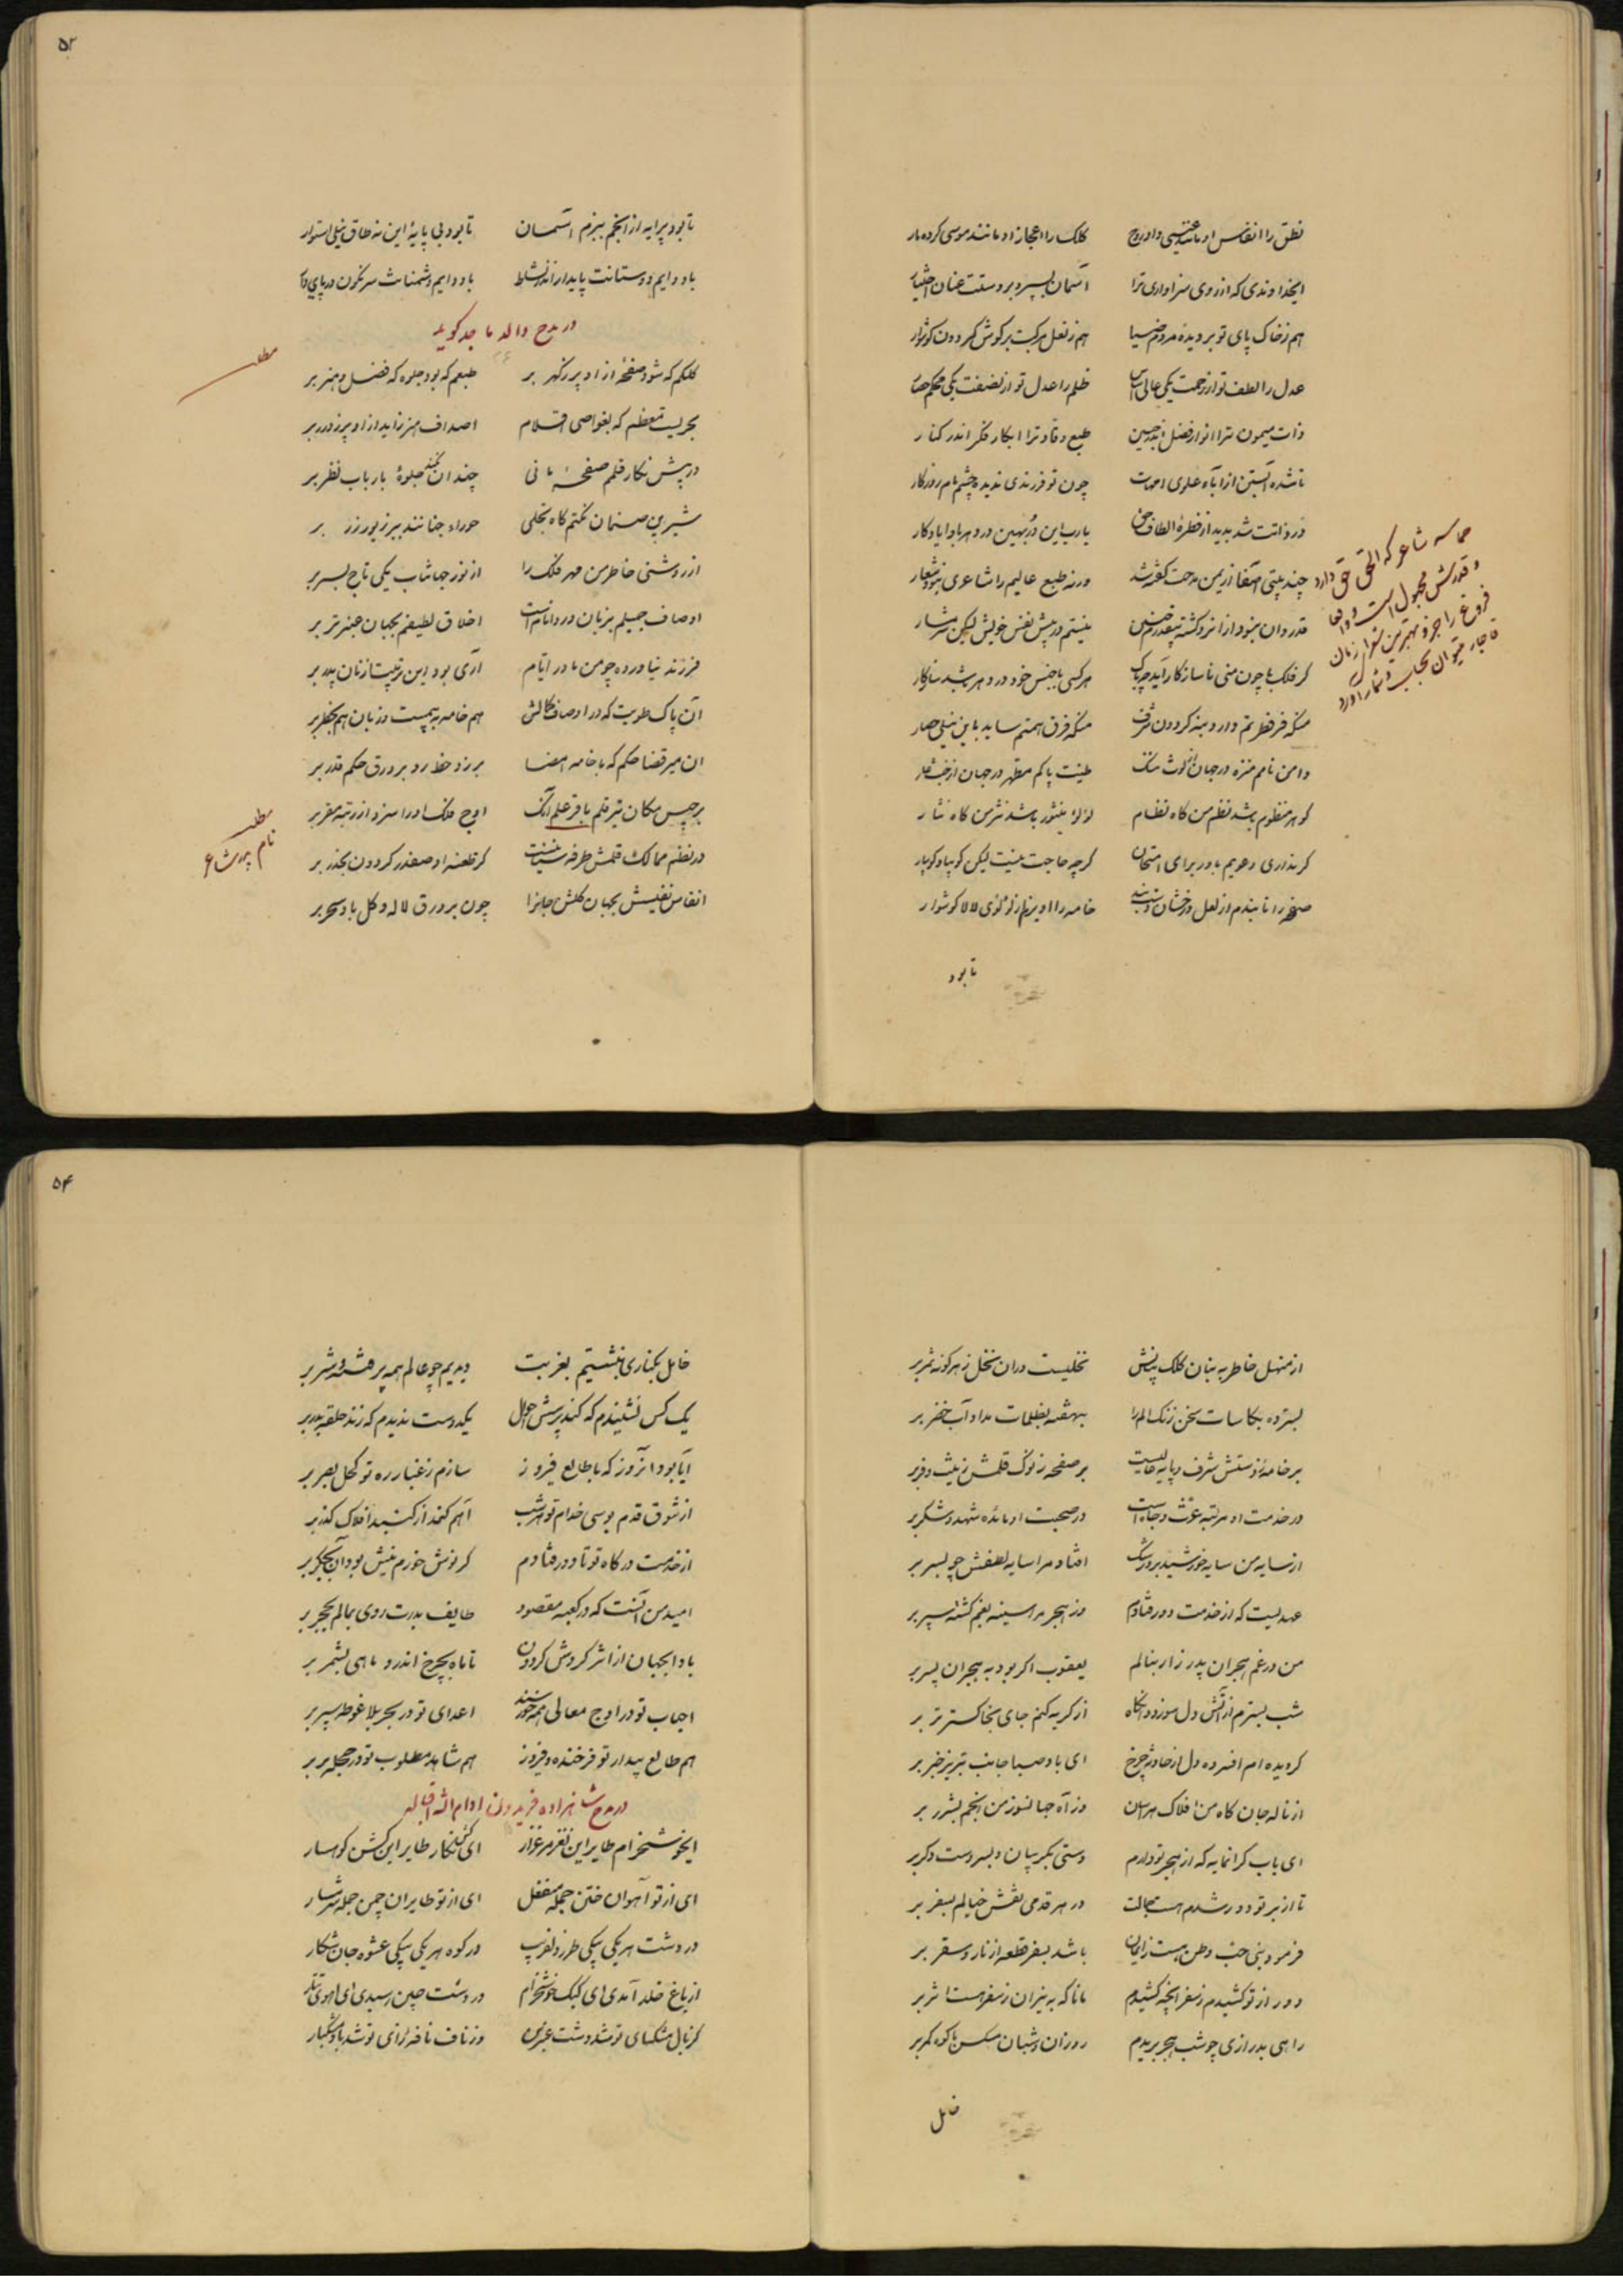 نطق را انفاس او مانند عیسی داد روح کلک را اعجاز او مانند موسی کرده مار
ایخداوندی که از روی سزاواری ترا آسمان بسپرد بر دستت عنان اختیار
هم ز خاک پای تو بر دیده مردم ضیا هم ز نعل مرکبت بر گوش گردون گوشوار
عدل را لطف تو از رحمت یکی عالی اساس ظلم را عدل تو از نصفت یکی محکم حصار
ذات میمون ترا انوار فضل اندر جبین طبع وقاد ترا ابکار فکر اندر کنار
ناشده آبستن از آباء علوی امهات چون تو فرزندی ندیده چشم مام روزگار
در ذاتت شد پدید از قطرهٔ الطاف حق یارب این در بهین در دهر بادا یادگار
چند بیتی اتفاقا از یمن مدحت گفته شد ورنه طبع عالیم را شاعری نبود شعار
قدردان نبود ازانرو گشته بیقدرم چنین نیستم در پیش نفس خویش لیکن شرمسار
گر فلک با چون منی ناسازگار آید چه باک هر کسی با جنس خود در دهر باشد سازگار
منکه فر فطرتم دارد بنه گردون شرف منکه فرق همتم ساید باین نیلی حصار
دامن نامم منزه در جهان ز لوث ننگ طینت پاکم مطهر در جهان از خبث عار
گوهر منظوم باشد نظم من گاه نظام لؤلؤ منثور باشد نثر من گاه نثار
گر نداری دعویم باور برای امتحان گرچه حاجت نیست لیکن گو بیا و گو بیار
صفحه را تا بندم از لعل درخشان خامه را آویزم از لؤلؤی لالا گوشوار
تا بود
حماسه شاعر که الحق حق دارد
و قدرش مجهول است و
فروغ را جزو بهترین شعرا زنان
قاجار میتوان بحساب و شمار آورد
۵۳
تا بود پیرایه از انجم ببزم آسمان تا بود بی پایه این نه طاق نیلی استوار
باد دایم دوستانت پایدار اندر نشاط باد دایم دشمنانت سرنگون در پای دار
در مدح والد ماجد گوید
کلکم که شود صفحه ازاد پر ز گهر بر طبعم که بود جلوه‌گه فضل و هنر بر
مطلب
بحریست معظم که بغواصی اقلام اصداف هنر زاید ازاو پر ز درر بر
در پیش نگار قلمم صفحهٔ مانی چندان نکند جلوهٔ بارباب نظر بر
شیرین صنمان نکتم گاه تجلی حوراء جنانند ببر زیور زر بر
از روشنی خاطر من مهر فلک را از نور جهانتاب یکی تاج بسر بر
اوصاف جمیلم بزبان در دانا نراست اخلاق لطیفم بجهان عنبر تر بر
فرزند نیاورده چو من مادر ایام آری بود این تربیت از نان پدر بر
آن پاک طویت که در اوصاف کمالش هم خامه به بیمست و زبان هم بخطر بر
آن میر قضا حکم که با خامه امضا برزد خط رد بر ورق حکم قدر بر
برجیس مکان تیر قلم باقر علم آنک اوج فلک او را سزد از رتبه مقر بر
مطلب
نام پدر شاعر
در نظم ممالک قلمش طرفه سنانیست کز طعنه او صفدر گردون بحذر بر
انفاس نفیسش بجهان گلشن جانرا چون بر ورق لاله و گل باد سحر بر
از منهل خاطر به بنان کلک بنش نخلیست دران نخل ز هر گونه ثمر بر
بسترده بکاسات سخن زنگ الم را بنهفته بظلمات مداد آب خضر بر
بر خامه ز دستش شرف و پایه عالیست بر صفحه ز نوک قلمش زینت و فر بر
در خدمت او مرتبه عزت و جاه است در صحبت او مائده شهد و شکر بر
از سایه من سایه خورشید برد رشک افتاد مرا سایه لطفش چو بسر بر
عهدیست که از خدمت دور فتادم وز هجر مرا سینه بغم گشته سپر بر
من در غم هجران پدر زار بنالم یعقوب اگر بود به هجران پسر بر
شب بسترم از آتش دل سوزد و آنگاه از گریه کنم جای بخاکستر تر بر
گردیده‌ام افسرده دل از حادثهٔ چرخ ای باد صبا جانب تبریز خبر بر
از ناله جان کاه من افلاک هراسان وز آه جهانسوز من انجم بشرر بر
ای باب گرانمایه که از هجر تو دارم دستی بگریبان و بسر دست دگر بر
تا از بر تو دور شدم هست بحالت در هر قدمی نقش خیالم بسفر بر
فرمود نبی حب وطن هست ز ایمان باشد بسفر قطعه از نار و سقر بر
دور از تو کشیدم ز سفر آنچه کشیدم مانا که به نیران ز سفر هست اثر بر
راهی بدرازی چو شب هجر بریدم روزان و شبان مسکن با کوه و کمر بر
خایل
۵۴
خایل بکناری بنشستیم بغربت دیدیم چو عالم همه پر فتنه و شر بر
یک کس نشنیدم که کند پرسش احوال یکدوست ندیدم که زند حلقه بدر بر
آیا بود آنروز که با طالع فیروز سازم ز غبار ره تو کحل بصر بر
از شوق قدم بوسی خدام تو هر شب آهم کند از گنبد افلاک گذر بر
از خدمت درگاه تو تا دور فتادم گر نوش خورم نیش بود آن بجگر بر
امید من آنست که در کعبه مقصود طایف بدرت روی بمالم بحجر بر
بادا بجهان از اثر گردش گردون تا ماه بچرخ اندر و ماهی بشمر بر
احباب تو در اوج معالی همه خورسند اعدای تو در بحر بلا غوطه سپر بر
هم طالع بیدار تو فرخنده و فیروز هم شاهد مطلوب تو در حجله ببر بر
در مدح شاهزاده فریدون ادام الله اقباله
ایخوشخرام طایر این نغز مرغزار ای طایر این گشن کوهسار
ای از تو آهوان ختن جمله منفعل ای از تو طایران چمن جمله شرمسار
در دشت هر یکی بیکی طرز دلفریب در کوه هر یکی بیکی عشوه جان شکار
از باغ خلد آمدی ای کبک خوشخرام در دشت چین رسیدی ای آهوی تتار
کز بال مشکسای تو شد دشت عنبرین وز ناف نافه زای تو شد باد مشکبار